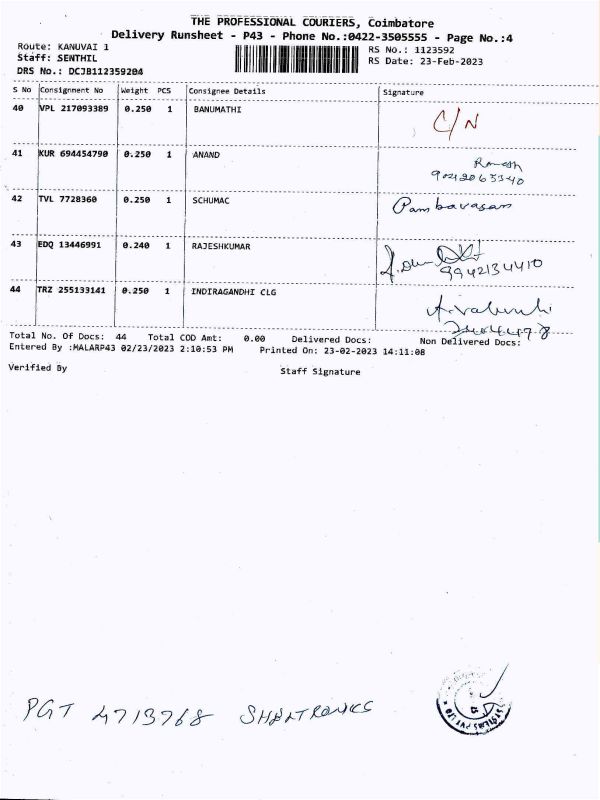 THE PROFESSIONAL COURIERS, Coimbatore
Delivery Runsheet - P43 - Phone No.:0422-3505555 - Page No.:4
Route: KANUVAI 1
Staff: SENTHIL
DRS No.: DCJB112359204
RS No.: 1123592
RS Date: 23-Feb-2023
S No Consignment No Weight PCS Consignee Details Signature
40 VPL 217093389 0.250 1 BANUMATHI C/N
41 KUR 694454790 0.250 1 ANAND Ramesh
42 TVL 7728360 0.250 1 SCHUMAC Pambavasan
43 EDQ 13446991 0.240 1 RAJESHKUMAR
9942134410
44 TRZ 255133141 0.250 1 INDIRAGANDHI CLG
Total No. Of Docs: 44 Total COD Amt: 0.00 Delivered Docs: Non Delivered Docs:
Entered By :MALARP43 02/23/2023 2:10:53 PM Printed On: 23-02-2023 14:11:08
Verified By Staff Signature
PGT 4713768